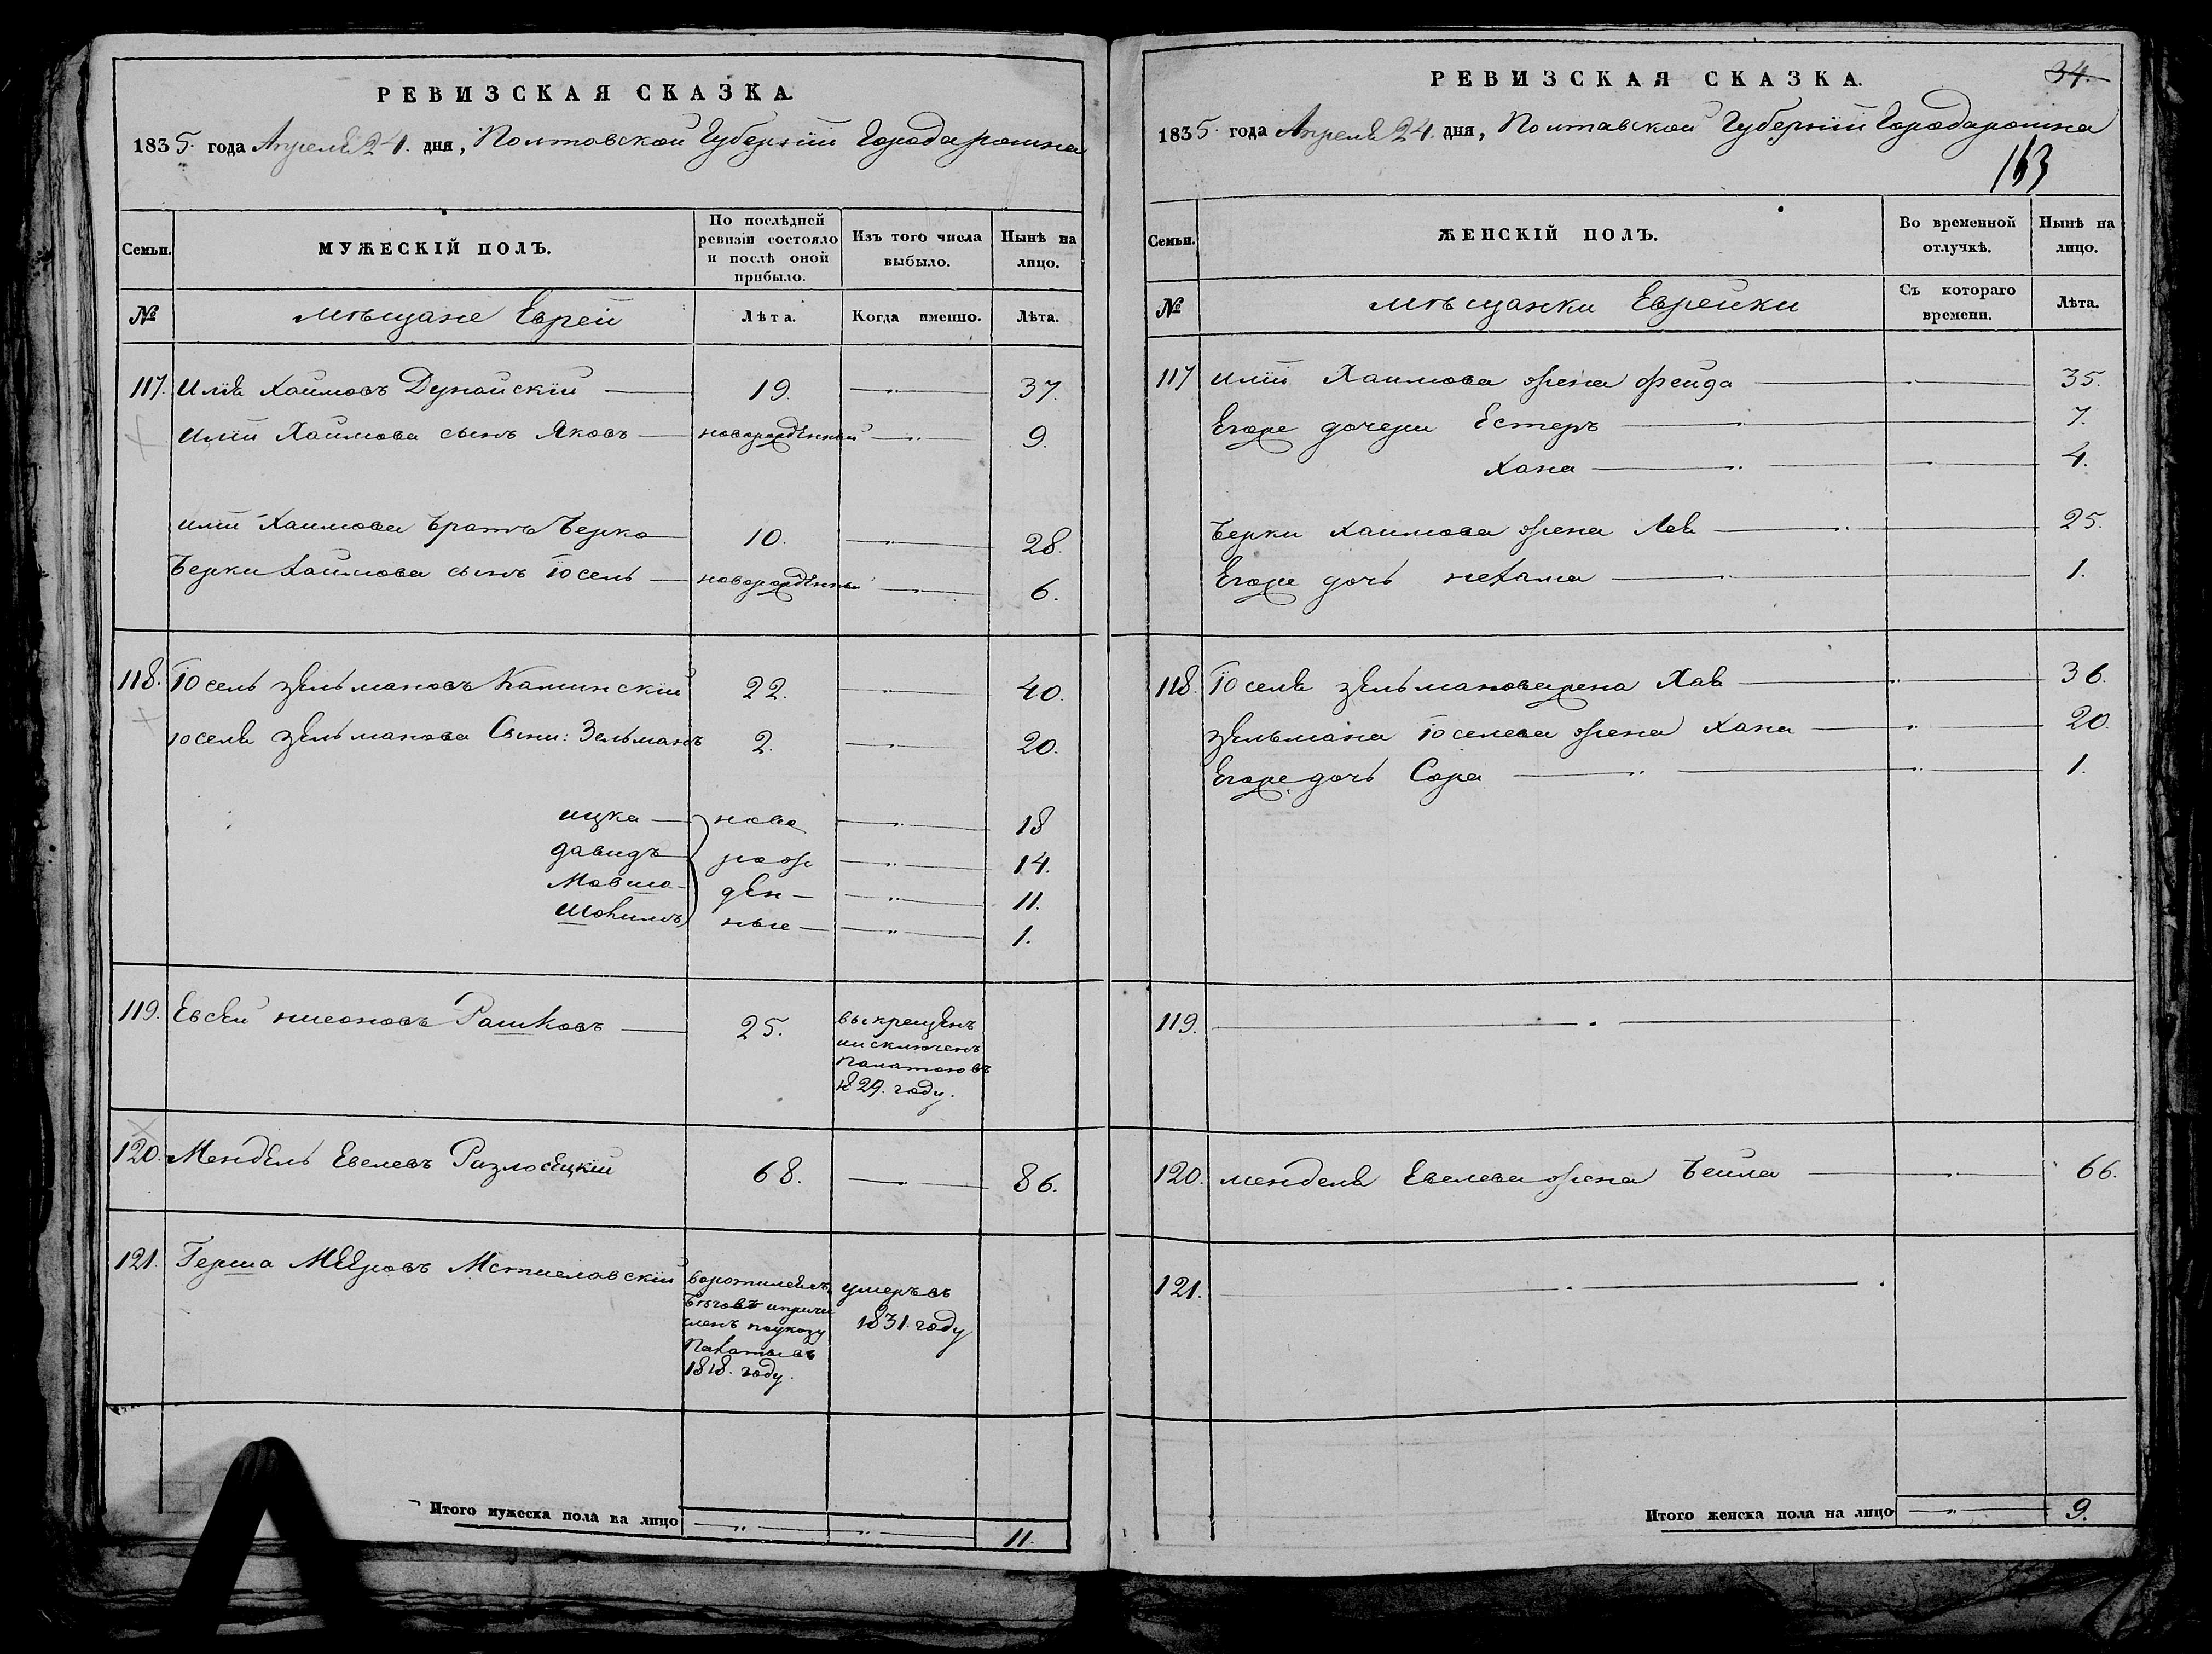 РЕВИЗСКАЯ СКАЗКА.
1835. года Апреля 24. дня, Полтовской Губернїи Города ромна
Семьи.
МУЖЕСКІЙ ПОЛЪ.
По послѣдней ревизіи состояло и послѣ оной прибыло.
Изъ того числа выбыло.
Нынѣ на лицо.
№
мѣщане Евреи
Лѣта.
Когда именно.
Лѣта.
117. Илія Хаимовъ Дунайскїй 19. 37.
Иліи Хаимова сынъ Яковъ новорожденный 9.
иліи Хаимова братъ Берко 10. 28.
Берки Хаимова сынъ Іосель новорожденны 6.
118. Іосель зельмановъ Каминскїй 22. 40.
Іоселя зельманова Сыни: Зельманъ 2. 20.
ицка ново 18
давидъ рож 14.
Мовша ден 11.
Шоликъ ные 1.
119. Евсей Расшковъ 25. выкрещенъ
иисключенъ
палатою въ
1829. году.
120. Мендель Евелевъ 68. 86.
121. Герша Мееровъ Мстиславскїй умеръ въ
1831. году
Бѣговъ иприч
ленъ поуказу
Палаты въ
1818. году.
Итого мужеска пола на лицо 11.
РЕВИЗСКАЯ СКАЗКА.
34.
1835. года Апреля 24. дня, Полтавской Губернїи Города ромна
163
Семьи.
ЖЕНСКІЙ ПОЛЪ.
Во временной отлучкѣ.
Нынѣ на лицо.
№
мѣщанки Еврейки
Съ котораго времени.
Лѣта.
117 иліи Хаимова жена фейда 35.
Егоже дочери Естеръ 7.
Хана 4.
Берки Хаимова жена Лея 25.
Егоже дочь нехама 1.
118. Іоселя зельманова жена Хая 36.
Зельмана Іоселева жена Хана 20.
Егоже дочь Сора 1.
119.
120. менделя Евелева жена Бейла 66.
121.
Итого женска пола на лицо 9.